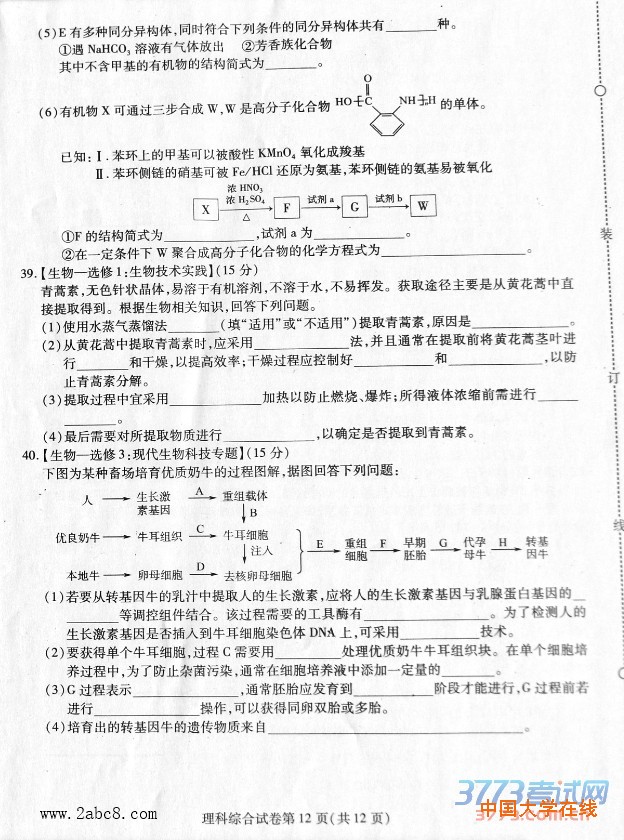 (5)E有多种同分异构体,同时符合下列条件的同分异构体共有________种。
①遇NaHCO₃溶液有气体放出 ②芳香族化合物
其中不含甲基的有机物的结构简式为________。
(6)有机物X可通过三步合成W,W是高分子化合物 HO C O NH H 的单体。
已知:Ⅰ.苯环上的甲基可以被酸性KMnO₄氧化成羧基
Ⅱ.苯环侧链的硝基可被Fe/HCl还原为氨基,苯环侧链的氨基易被氧化
X 浓HNO₃ 浓H₂SO₄ △ F 试剂a G 试剂b W
①F的结构简式为____________,试剂a为____________。
②在一定条件下W聚合成高分子化合物的化学方程式为____________________。
39.【生物—选修1:生物技术实践】(15分)
青蒿素,无色针状晶体,易溶于有机溶剂,不溶于水,不易挥发。获取途径主要是从黄花蒿中直
接提取得到。根据生物相关知识,回答下列问题。
(1)使用水蒸气蒸馏法________(填“适用”或“不适用”)提取青蒿素,原因是______________。
(2)从黄花蒿中提取青蒿素时,应采用____________法,并且通常在提取前将黄花蒿茎叶进
行________和干燥,以提高效率;干燥过程应控制好____________和____________,以防
止青蒿素分解。
(3)提取过程中宜采用____________加热以防止燃烧、爆炸;所得液体浓缩前需进行______
________。
(4)最后需要对所提取物质进行____________,以确定是否提取到青蒿素。
40.【生物—选修3:现代生物科技专题】(15分)
下图为某种畜场培育优质奶牛的过程图解,据图回答下列问题:
人 生长激素基因 A 重组载体
B
优良奶牛 牛耳组织 C 牛耳细胞
注入
E 重组细胞 F 早期胚胎 G 代孕母牛 H 转基因牛
本地牛 卵母细胞 D 去核卵母细胞
(1)若要从转基因牛的乳汁中提取人的生长激素,应将人的生长激素基因与乳腺蛋白基因的__
________等调控组件结合。该过程需要的工具酶有________________。为了检测人的
生长激素基因是否插入到牛耳细胞染色体DNA上,可采用____________技术。
(2)要获得单个牛耳细胞,过程C需要用__________处理优质奶牛牛耳组织块。在单个细胞培
养过程中,为了防止杂菌污染,通常在细胞培养液中添加一定量的________。
(3)G过程表示______________,通常胚胎应发育到____________阶段才能进行,G过程前若
进行______________操作,可以获得同卵双胎或多胎。
(4)培育出的转基因牛的遗传物质来自______________________________。
装
订
线
理科综合试卷第12页(共12页)
www.2abc8.com
3773考试网
中国大学在线